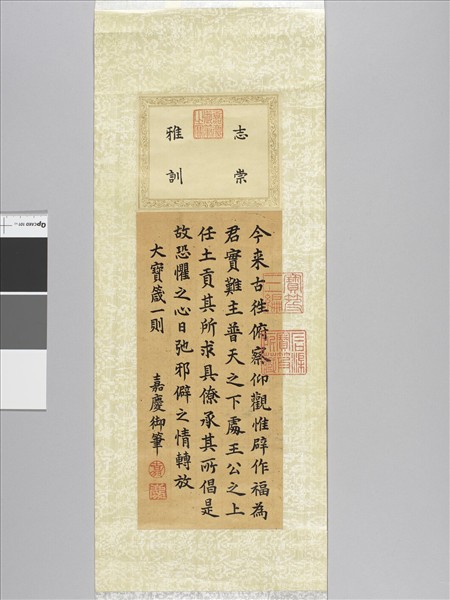 志崇
雅訓
今来古往俯察仰觀惟辟作福為
君實難主普天之下處王公之上
任土貢其所求具僚承其所倡是
故恐懼之心日弛邪僻之情轉放
大寶箴一則
嘉慶御筆